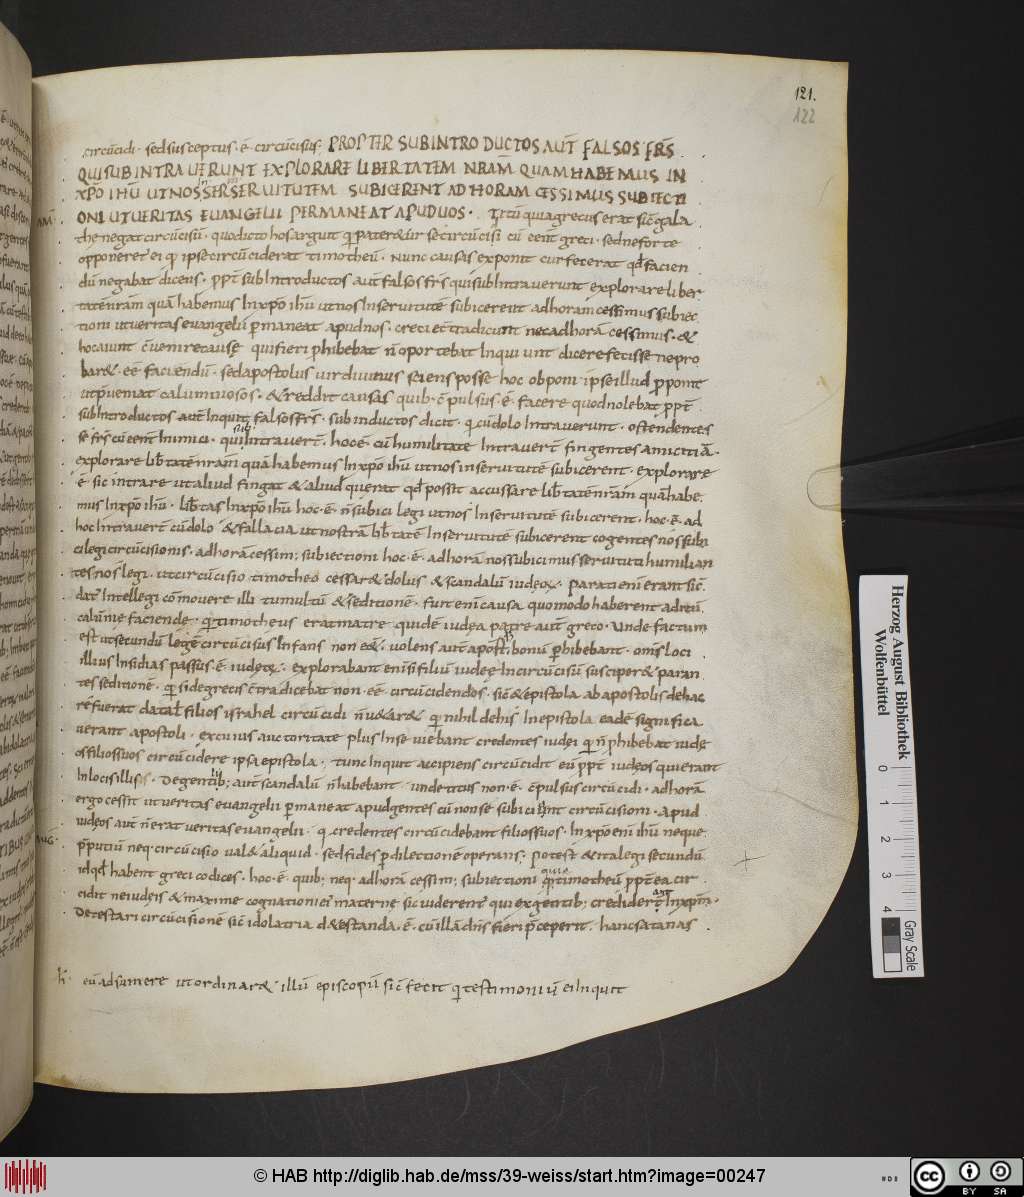 121.
122
circūcidi · sed susceptus · ē · circūcisus · PROPTER SUBINTRODUCTOS AUT̄ FALSOS FR̄S
QUI SUBINTRAUERUNT EXPLORARE LIBERTATEM NRAM̄ QUAM HABEMUS IN
XPO IHU UT NOS IN SERUITUTEM SUBICERENT AD HORAM CESSIMUS SUBIECTI
ONI UT UERITAS EUANGELII PERMANEAT APUD UOS · Titū quia grecus erat sic̄ gala
the negat circūcisū · quo dicto hos arguit
opponeret ei q ipse circūciderat timotheū · Nunc causas exponit cur fecerat qd facien
dū negabat dicens · ppt subintroductos aut falsos frs qui subintrauerunt explorare liber
tatē nram quā habemus in xpo ihu ut nos in seruitutē subicerent ad horam cessimus subiec
tioni ut ueritas euangelii pmaneat apud nos · greci ec̄tra dicunt nec ad horā cessimus · &
hoc aiunt qui fieri phibebat n̄ oportebat inquiunt dicere fecisse ne pro
bar& · eē faciendū · sed apostolus uir diuinus sciens posse hoc obponi ipse illud pponit
ut pueniat caluminosos · & reddit causas quib · c̄pulsus ē · facere quod nolebat ppt
subintroductos aut inquit falsos frs · subinductos dicit · q cū dolo intrauerunt · ostendentes
se frs cū eent inimici · qui subintrauert · hoc ē · cū humilitate intrauert fingentes amicitiā ·
explorare libtatē nram quā habemus in xpo ihu ut nos in seruitutē subicerent · explorare
ē · sic intrare ut aliud fingat & aliud querat qd possit accussare libtatē nram quā habe
mus in xpo ihu · libtas in xpo ihu hoc · ē · n̄ subici legi ut nos in seruitutē subicerent · hoc · ē · ad
hoc intrauert cū dolo & fallacia ut nostrā libtatē in seruitutē subicerent cogentes nos subi
ci legi circūcisionis · ad horā cessim; subiectioni hoc · ē · ad horā nos subicimus seruituti humilian
tes nos legi · ut circūcisio timotheo cessar& dolus & scandalū iudeoꝝ · parati enī erant sic̄
dat intellegi cōmouere illi tumultū & seditionē · fuit enī causa quomodo haberent aditū
calūnie faciende · q timotheus erat matre quidē iudea patre aut greco · unde factum
est ut secundū legē circūcisus infans non eēt · uolens aut apost hoc bonū phibebant · omis loci
illius insidias passus · ē · iudeoꝝ · explorabant enī si filiū iudee incircūcisū susciper& paran
tes seditionē · q si de grecis c̄tra dicebat non · eē · circūcidendos · sic̄ & epistola ab apostolis de hac
re fuerat data filios israhel circūcidi n̄ uetar& q nihil de his in epistola eadē significa
uerant apostoli · ex cuius auctoritate plus in se uiebant credentes iudei q n̄ phibebat iude
os filios suos circūcidere ipsa epistola · tunc inquit accipiens circūcidit eū ppt iudeos qui erant
in locis illis · De gentib; aut scandalū n̄ habebant · unde titus non · ē · c̄pulsus circūcidi · ad horā
ergo cessit ut ueritas euangelii pmaneat apud gentes cū non se subiciunt circūcisioni · Apud
iudeos aut n̄ erat ueritas euangelii · q credentes circūcidebant filios suos · In xpo enī ihu neque
pputiū neq · circūcisio ual& aliquid · sed fides p dilectionē operans · potest & ita legi secundū
id qd habent greci codices · hoc · ē · quib; neq · ad horā cessim; subiectioni quia timotheū ppt ea cir
cidit ne iudeis & maxime cognationi ei materne sic uiderent qui ex gentib; crediderant in xpm ·
Detestari circūcisionē sic̄ idolatria d&estanda · ē · cū illā dns fieri pceperit · hanc satanas
h̄ · eū adsumere ut ordinar& illū episcopū sic̄ fecit q testimoniū ei inquit
Herzog August Bibliothek
Wolfenbüttel
0 1 2 3 4
Gray Scale
© HAB http://diglib.hab.de/mss/39-weiss/start.htm?image=00247
cc BY SA